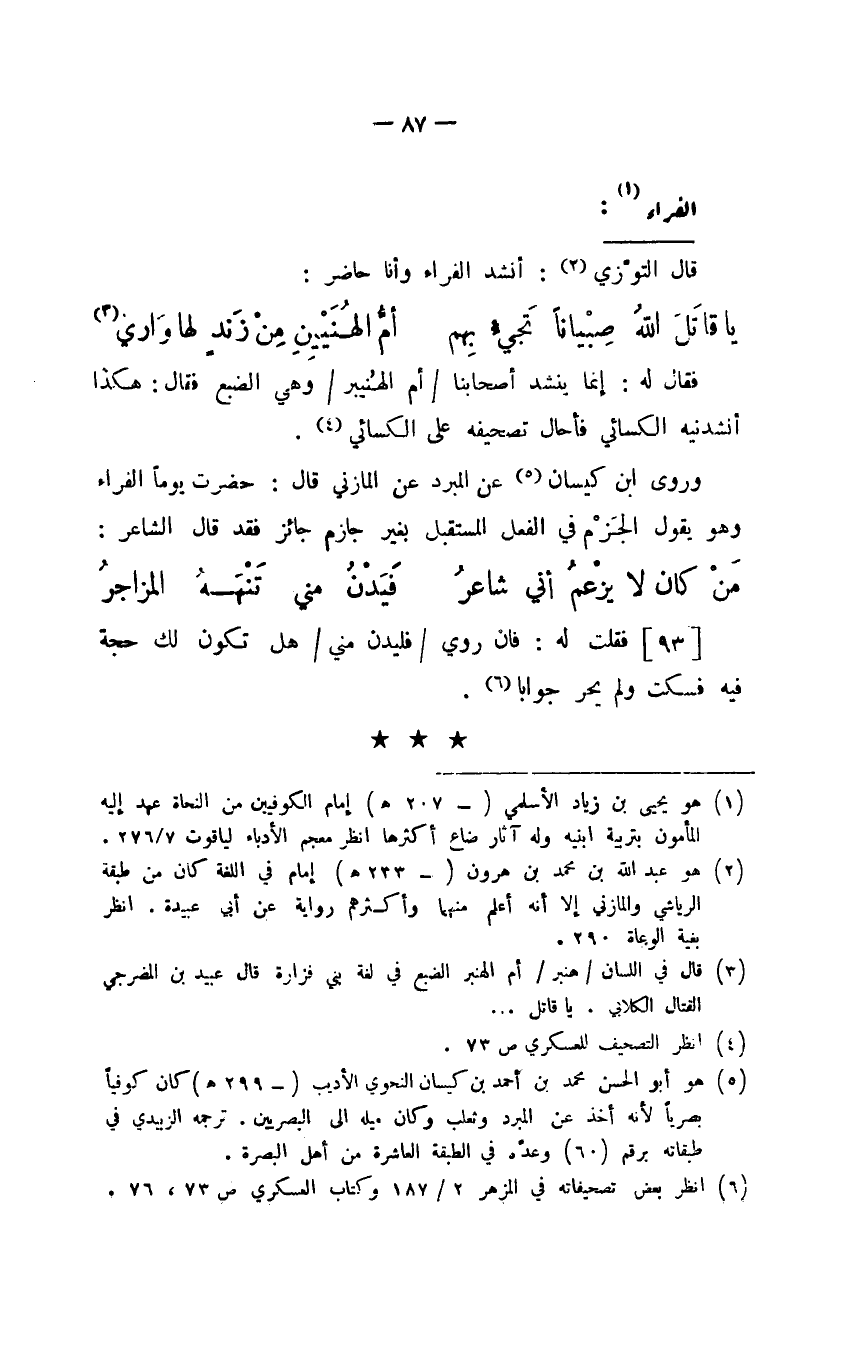 — ٨٧ —
الفراء (١) :
قال التوّزي (٢) : أنشد الفراء وأنا حاضر :
يا قاتَلَ اللهُ صِبْياناً تَجيءُ بِهِم أمُّ الهُنَيْيِنِ مِنْ زَندٍ لها وَاري (٣)
فقال له : إنما ينشد أصحابنا / أم الهنيبر / وهي الضبع فقال : هكذا
أنشدنيه الكسائي فأحال تصحيفه على الكسائي (٤) .
وروى ابن كيسان (٥) عن المبرد عن المازني قال : حضرت يوماً الفراء
وهو يقول الجَزْم في الفعل المستقبل بغير جازم جائز فقد قال الشاعر :
مَنْ كان لا يزْعمُ أني شاعرُ فَيَدْنُ مني تَنْهَـهُ المزاجرُ
[ ٩٣ ] فقلت له : فان روي / فليدن مني / هل تكون لك حجة
فيه فسكت ولم يحر جوابا (٦) .
★ ★ ★
(١) هو يحيى بن زياد الأسلمي ( ــ ٢٠٧ ه ) إمام الكوفيين من النحاة عهد إليه
المأمون بتربية ابنيه وله آثار ضاع أكثرها انظر معجم الأدباء لياقوت ٢٧٦/٧ .
(٢) هو عبد الله بن محمد بن هرون ( ــ ٢٣٣ ه ) إمام في اللغة كان من طبقة
الرياشي والمازني إلا أنه أعلم منهما وأكثرهم رواية عن أبي عبيدة . انظر
بغية الوعاة ٢٩٠ .
(٣) قال في اللسان / هنبر / أم الهنبر الضبع في لغة بني فزارة قال عبيد بن المضرجي
القتال الكلابي . يا قاتل ...
(٤) انظر التصحيف للعسكري ص ٧٣ .
(٥) هو أبو الحسن محمد بن أحمد بن كيسان النحوي الأديب ( ــ ٢٩٩ ه ) كان كوفياً
بصرياً لأنه أخذ عن المبرد وثعلب وكان ميله الى البصريين . ترجمه الزبيدي في
طبقاته برقم (٦٠) وعدّه في الطبقة العاشرة من أهل البصرة .
(٦) انظر بعض تصحيفاته في المزهر ٢ / ١٨٧ وكتاب العسكري ص ٧٣ ، ٧٦ .